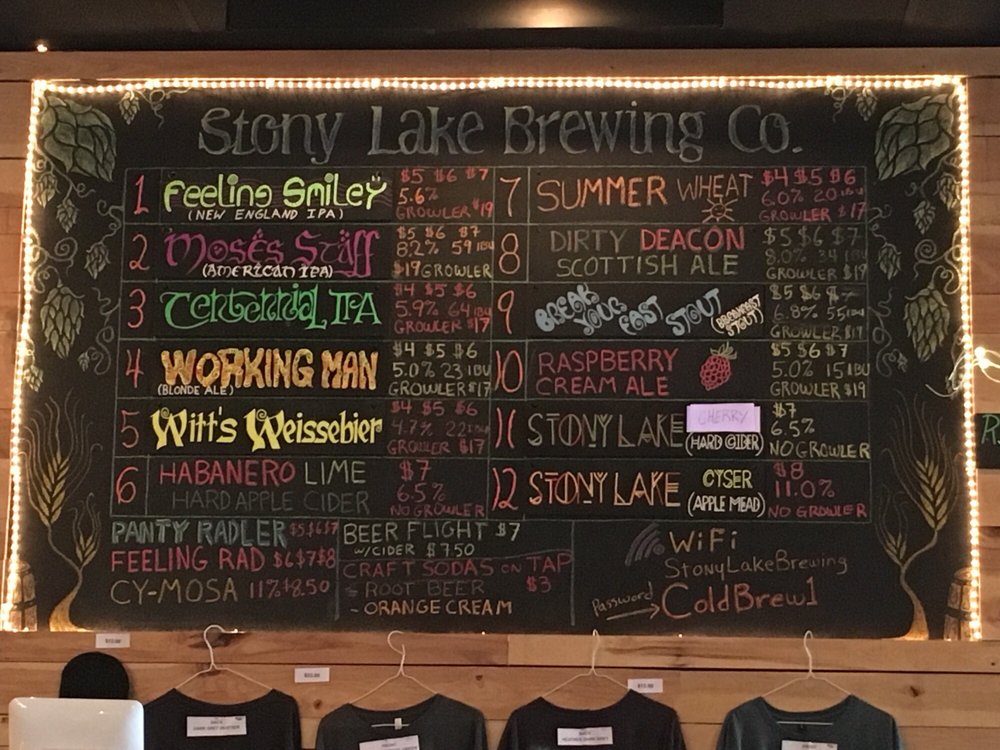 Stony Lake Brewing Co.
1 Feeling Smiley $5 $6 $7
(NEW ENGLAND IPA) 5.6%
GROWLER $19
2 Moses Stiff $5 $6 $7
(AMERICAN IPA) 8.2% 59 IBU
$19 GROWLER
3 Centennial IPA $4 $5 $6
5.9% 64 IBU
GROWLER $17
4 WORKING MAN $4 $5 $6
(BLONDE ALE) 5.0% 23 IBU
GROWLER $17
5 Witt's Weissebier $4 $5 $6
4.7% 22 IBU
GROWLER $17
6 HABANERO LIME $7
HARD APPLE CIDER 6.5%
NO GROWLER
7 SUMMER WHEAT $4 $5 $6
6.0% 20 IBU
GROWLER $17
8 DIRTY DEACON $5 $6 $7
SCOTTISH ALE 8.0% 34 IBU
GROWLER $19
9 BREAK YOUR FAST STOUT $5 $6 $7
(BREAKFAST STOUT) 6.8% 55 IBU
GROWLER $19
10 RASPBERRY $5 $6 $7
CREAM ALE 5.0% 15 IBU
GROWLER $19
11 STONY LAKE CHERRY $7
(HARD CIDER) 6.5%
NO GROWLER
12 STONY LAKE CYSER $8
(APPLE MEAD) 11.0%
NO GROWLER
PANTY RADLER $5 $6 $7
FEELING RAD $6 $7 $8
CY-MOSA 11% $8.50
BEER FLIGHT $7
W/CIDER $7.50
CRAFT SODAS ON TAP
- ROOT BEER $3
- ORANGE CREAM
WiFi
StonyLakeBrewing
Password → ColdBrew1